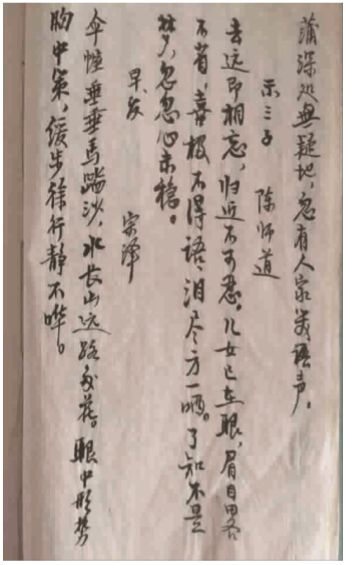 蒲深处無疑地，忽有人家笑语声。
示三子 陈师道
去远即相忘，归近不可忍。儿女已在眼，眉目略
不省。喜极不得语，泪尽方一哂。了知不是
梦，忽忽心未稳。
早发 宗泽
伞幄垂垂馬踏沙，水长山远路多花。眼中形势
胸中策，缓步徐行静不哗。